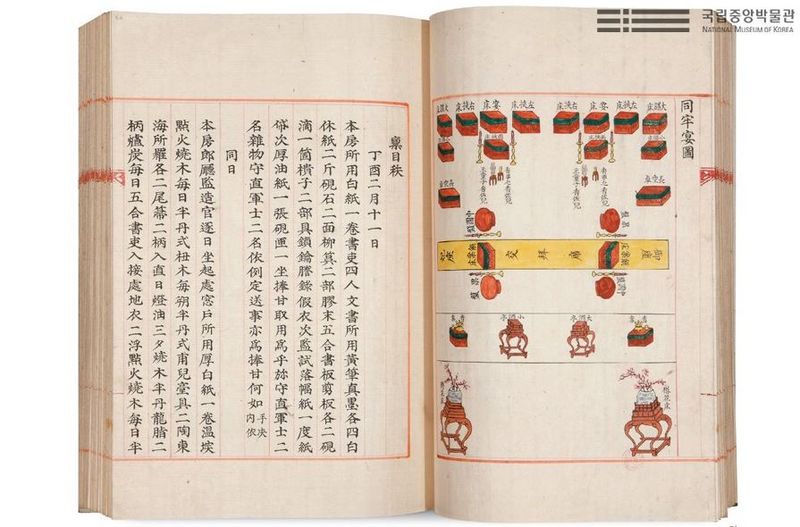 국립중앙박물관
NATIONAL MUSEUM OF KOREA
同牢宴圖
大饌床
左挾床
宴床
右挾床
左挾床
宴床
右挾床
大饌床
御座
交拜席
香案
大酒亭
小酒亭
香案
稟目秩
丁酉二月十一日
本房所用白紙一卷書吏四人文書所用黃筆真墨各四白
休紙二斤硯石二面柳箕二部膠末五合書板剪板各二硯
滴一箇樻子二部具鎖鑰謄錄假衣次監試落幅紙一度紙
帒次厚油紙一張硯匣一坐捧甘取用爲乎旀守直軍士二
名雜物守直軍士二名依例定送事亦爲捧甘何如 手决內依
同日
本房郎廳監造官逐日坐起處窓戶所用厚白紙一卷溫堗
㸃火燒木每日半丹式杻木每朔半丹式甫兒臺具二陶東
海所羅各二尾箒二柄入直日燈油三夕燒木半丹龍脂二
柄爐炭每日五合書吏入接處地衣二浮㸃火燒木每日半